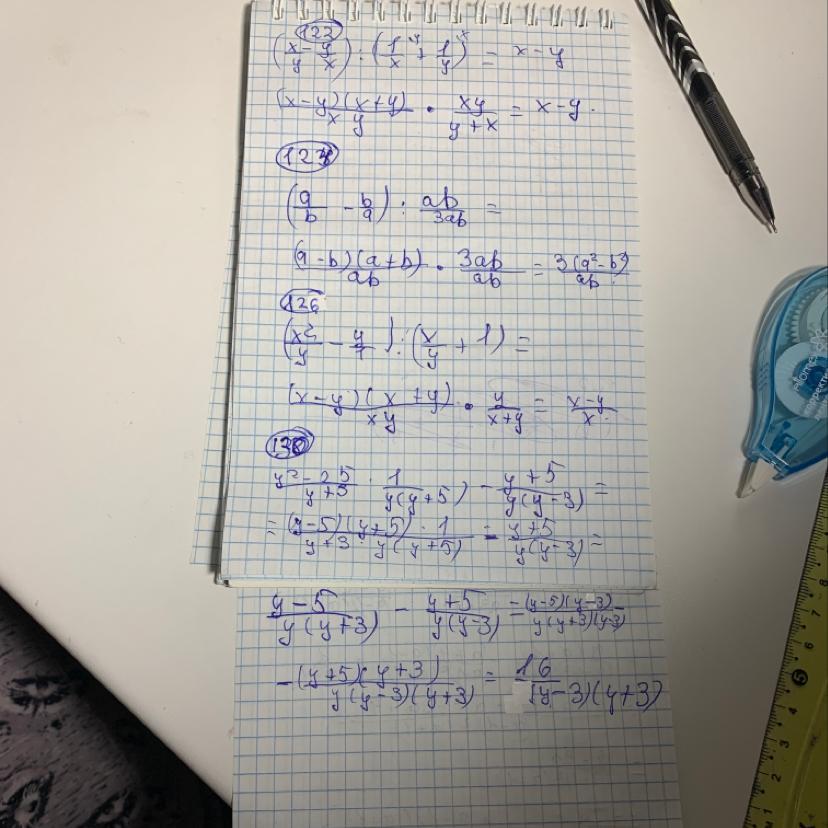 122
(x/y - y/x) : (1/x^y + 1/y^x) = x - y
(x-y)(x+y)/xy · xy/y+x = x-y.
124
(a/b - b/a) : ab/3ab =
(a-b)(a+b)/ab · 3ab/ab = 3(a²-b²)/ab.
126
(x²/y - y/1) : (x/y + 1) =
(x-y)(x+y)/xy · y/x+y = x-y/x.
130
y²-25/y+3 · 1/y(y+5) - y+5/y(y-3) =
= (y-5)(y+5)·1/y+3·y(y+5) - y+5/y(y-3) =
y-5/y(y+3) - y+5/y(y-3) = (y-5)(y-3)/y(y+3)(y-3) -
-(y+5)(y+3)/y(y-3)(y+3) = 16/(y-3)(y+3)